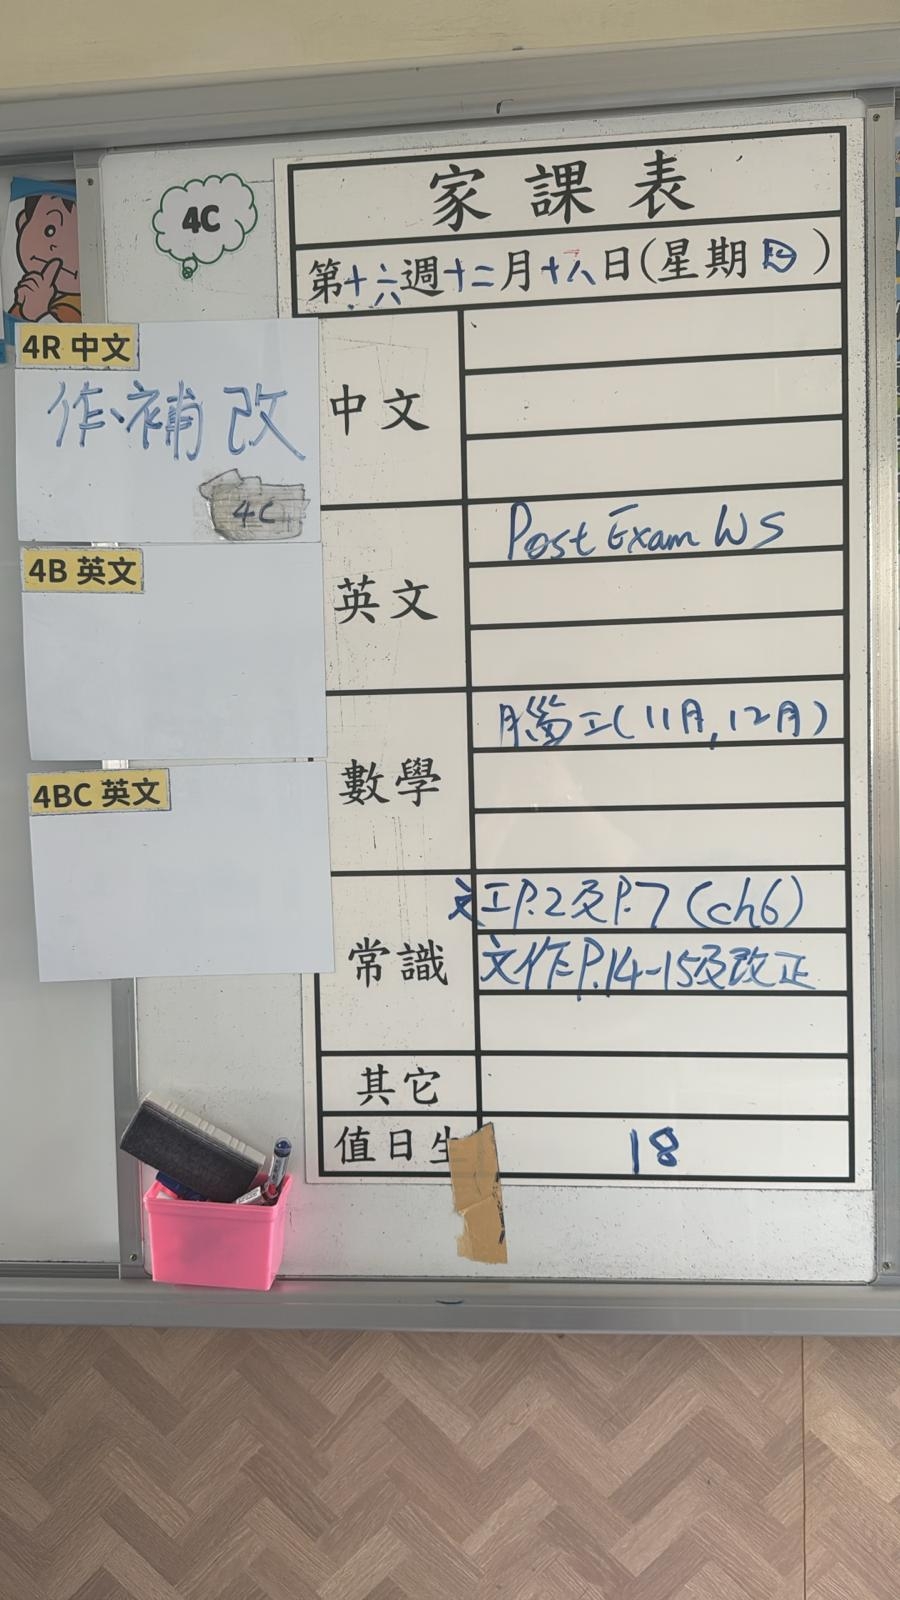 4C
家課表
第十六週十二月十八日(星期四)
4R 中文
作、補改
4C
中文
4B 英文
英文
Post Exam WS
4BC 英文
數學
腦工(11月,12月)
常識
文工P.2及P.7(ch6)
文作P.14-15及改正
其它
值日生
18